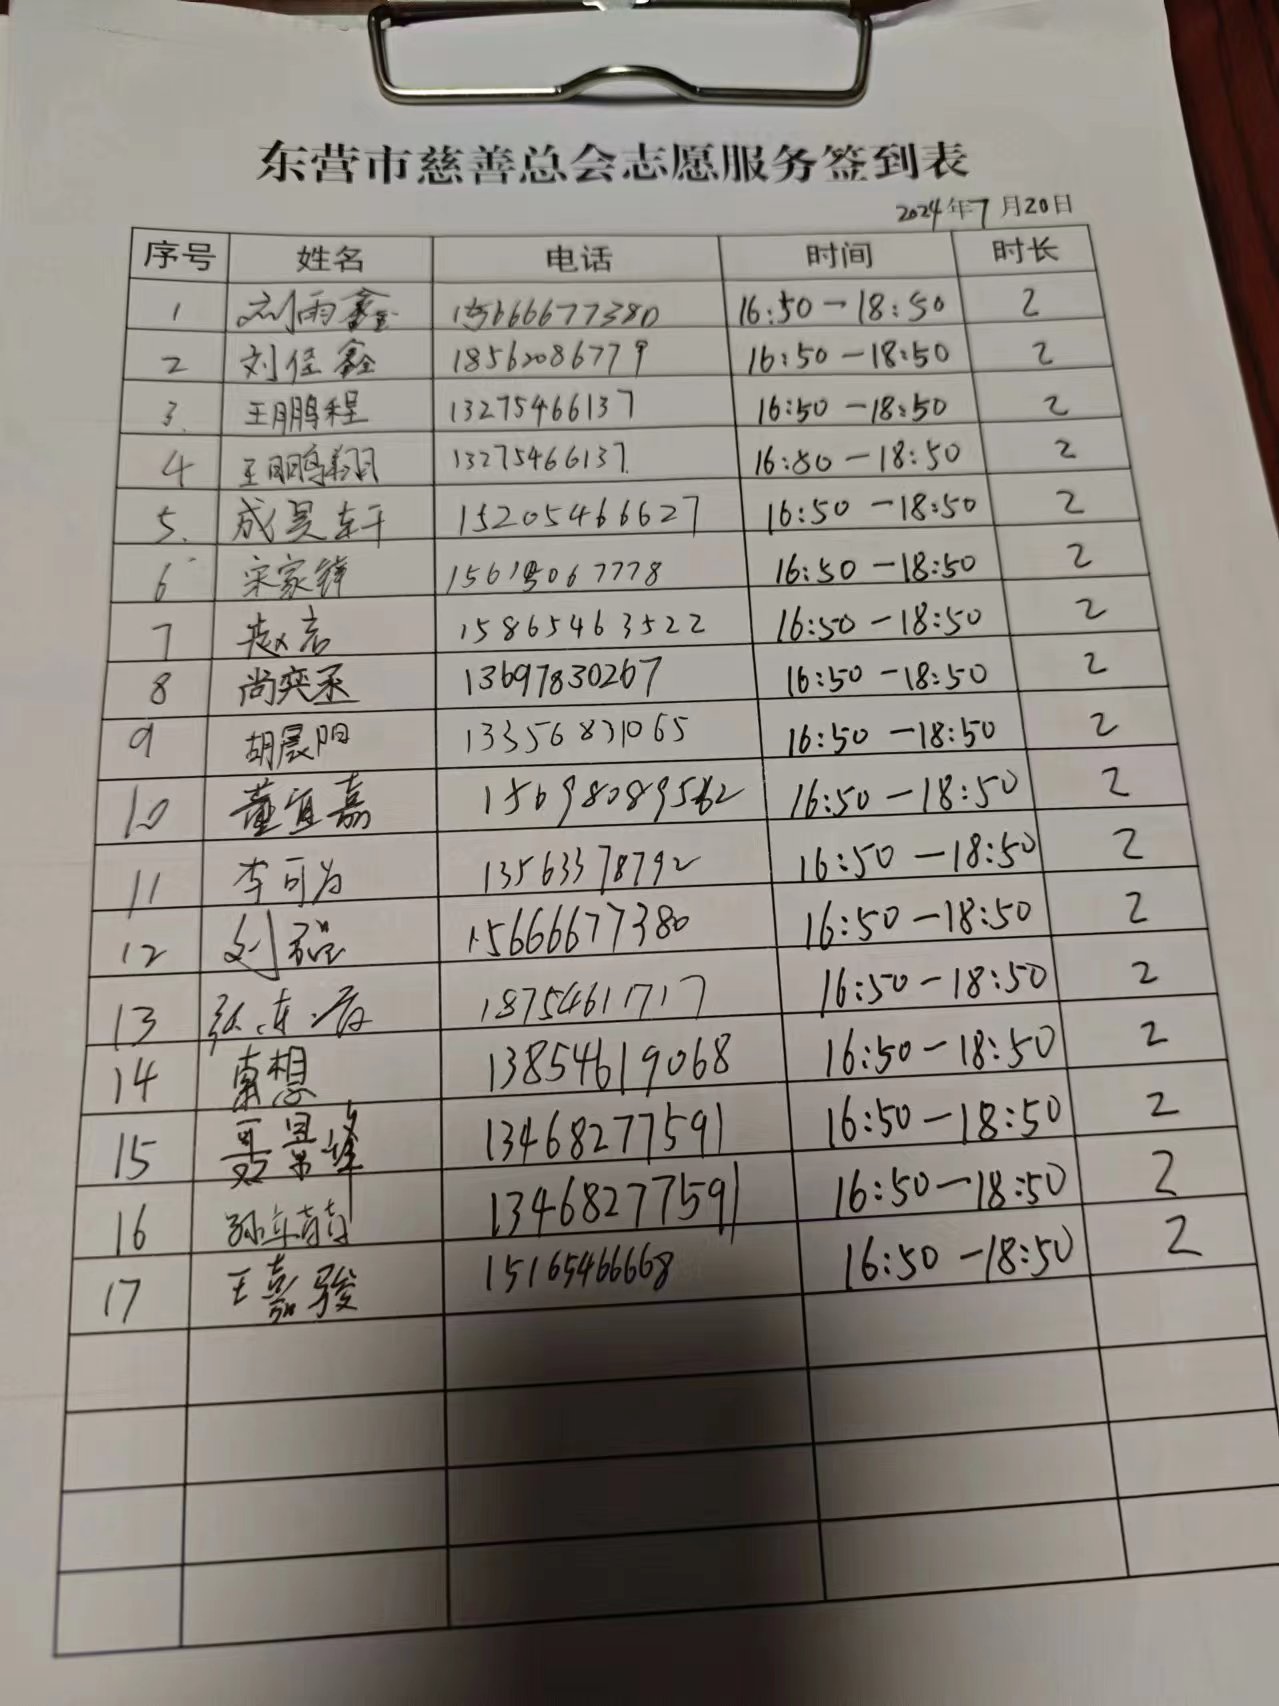 东营市慈善总会志愿服务签到表
2024年7月20日
序号 姓名 电话 时间 时长
1 刘雨鑫 15666677380 16:50-18:50 2
2 刘佳鑫 18562086779 16:50-18:50 2
3. 王鹏程 13275466137 16:50-18:50 2
4 王鹏翔 13275466137. 16:50-18:50 2
5. 成昊轩 15205466627 16:50-18:50 2
6 宋家锋 7778 16:50-18:50 2
7 赵 15865463522 16:50-18:50 2
8 尚奕丞 13697830267 16:50-18:50 2
9 胡晨阳 13356831065 16:50-18:50 2
10 董宜嘉 16:50-18:50 2
11 李可为 13563378792 16:50-18:50 2
12 刘 15666677380 16:50-18:50 2
13 18754611717 16:50-18:50 2
14 想 13854619068 16:50-18:50 2
15 聂景峰 13468277591 16:50-18:50 2
16 孙 13468277591 16:50-18:50 2
17 王嘉骏 15165466668 16:50-18:50 2